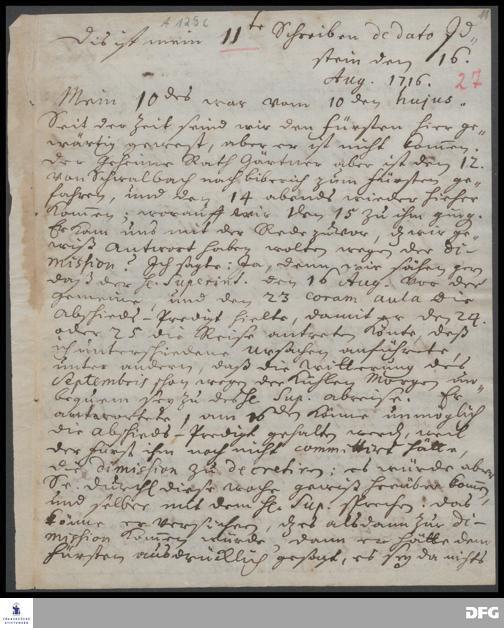 A 125c
11
Dis ist mein 11te Schreiben de dato Id-
stein den 16.
Aug. 1716.
27
Mein 10des war vom 10 den hujus.
Seit der Zeit seind wir den Fürsten hier ge-
wärtig gewest, aber er ist nicht kommen.
Der Geheime Rath Gärtner aber ist den 12.
von Schwalbach nach Biberich zum Fürsten ge-
fahren, und den 14 abends wieder hieher
kommen; worauff wir den 15 zu ihm ging.
Er kam uns mit der Rede zuvor, wir ge-
wiß Antwort haben wolten wegen der di-
mission? Ich sagte: Ja, denn wir sähen gern
daß der H. Superint. den 16 Aug. vor der
gemeine und den 23 coram aula die
Abschieds-Predigt hielte, damit er den 24.
oder 25 die Reise antreten könte, deß
ich unterschiedene ursachen anführete,
unter andern, daß die witterung des
Septembris schon wegen der kühlen Morgen un-
bequem sey zu des H. Sup. abreise. Er
antwortete, am 16den könne unmöglich
die Abschieds-Predigt gehalten werden, weil
der Fürst ihm noch nicht committirt hätte,
die dimission zu decretiren: es würde aber
Se. Durchl. diese woche gewiß herüber kommen,
und selber mit dem H. Sup. sprechen: das
könne er versichern, es alsdann zur di-
mission kommen würde, dann er hätte dem
Fürsten ausdrücklich gesagt, es sey da nichts
FRANCKESCHE STIFTUNGEN
DFG